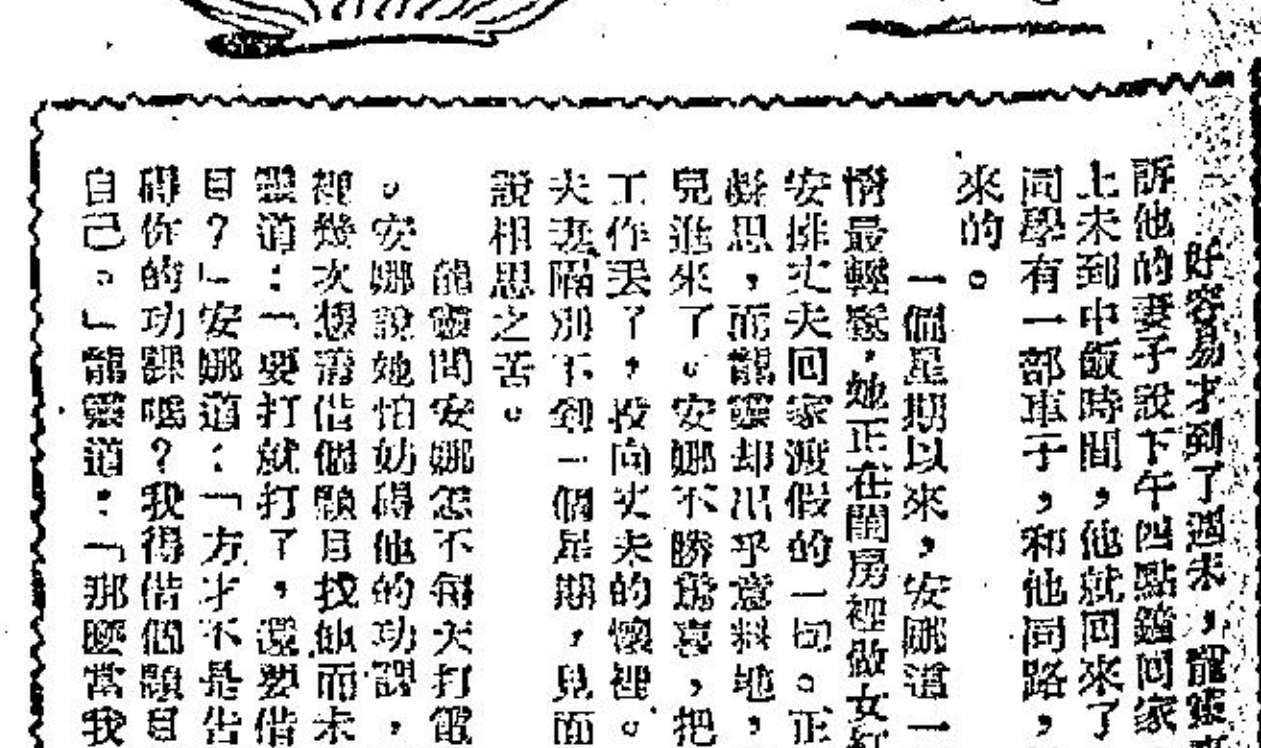 好容易才到了週末，龍靈
訴他的妻子說下午四點鐘回家
上未到中飯時間，他就回來了
同學有一部車子，和他同路，
來的。
一個星期以來，安娜這一
情最輕鬆，她正在閨房裡做女紅
安排丈夫回家渡假的一切。正
凝思，而龍靈却出乎意料地，
兒進來了。安娜不勝驚喜，把
工作丟了，投向丈夫的懷裡。
夫妻隔別不到一個星期，見面
說相思之苦。
龍靈問安娜怎不每天打電
。安娜說她怕妨碍他的功課，
裡幾次想著借個題目找他而未
靈道：「要打就打了，還要借
目？」安娜道：「方才不是告
碍你的功課嗎？我得借個題目
自己。」龍靈道：「那麼當我